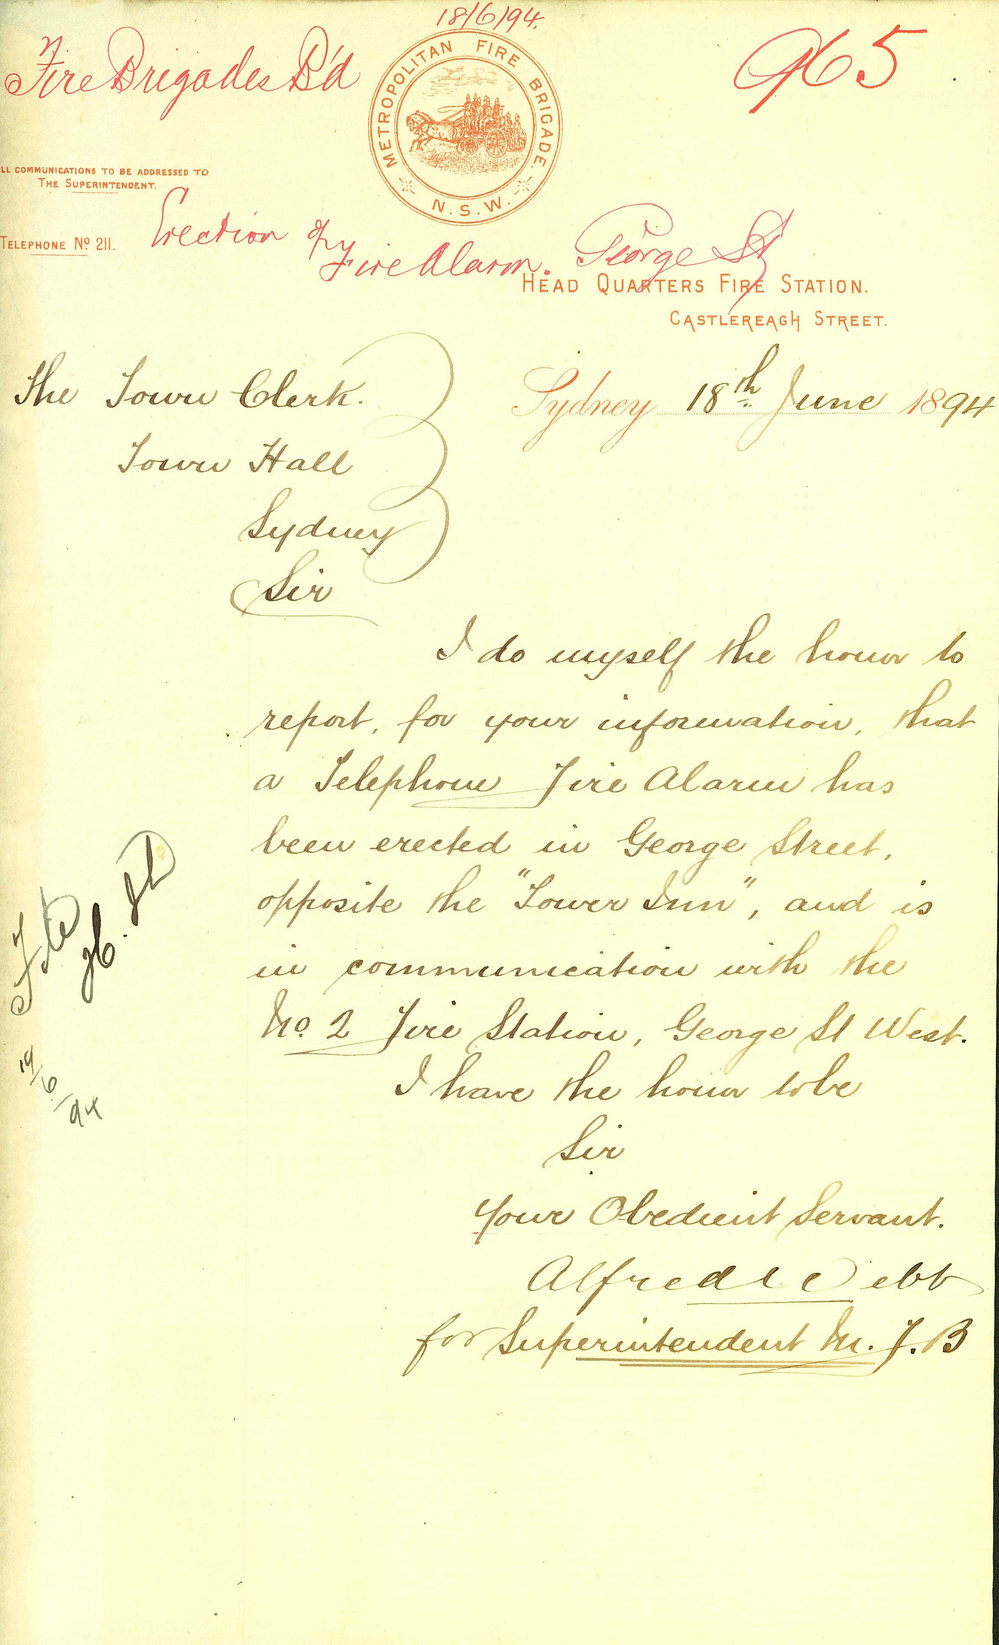 18/6/94.
Fire Brigades B'd
965
METROPOLITAN FIRE BRIGADE.
N.S.W.
LL COMMUNICATIONS TO BE ADDRESSED TO
THE SUPERINTENDENT.
TELEPHONE No 211.
Erection of
Fire Alarm. George St
HEAD QUARTERS FIRE STATION.
CASTLEREAGH STREET.
The Town Clerk.
Sydney 18th June 1894
Town Hall
Sydney
Sir
I do myself the honor to
report, for your information, that
a Telephone Fire Alarm has
been erected in George Street,
opposite the "Tower Inn", and is
in communication with the
No. 2 Fire Station, George St West.
I have the honor to be
Sir
Your Obedient Servant.
Alfred Webb
for Superintendent M. F. B
19/6/94